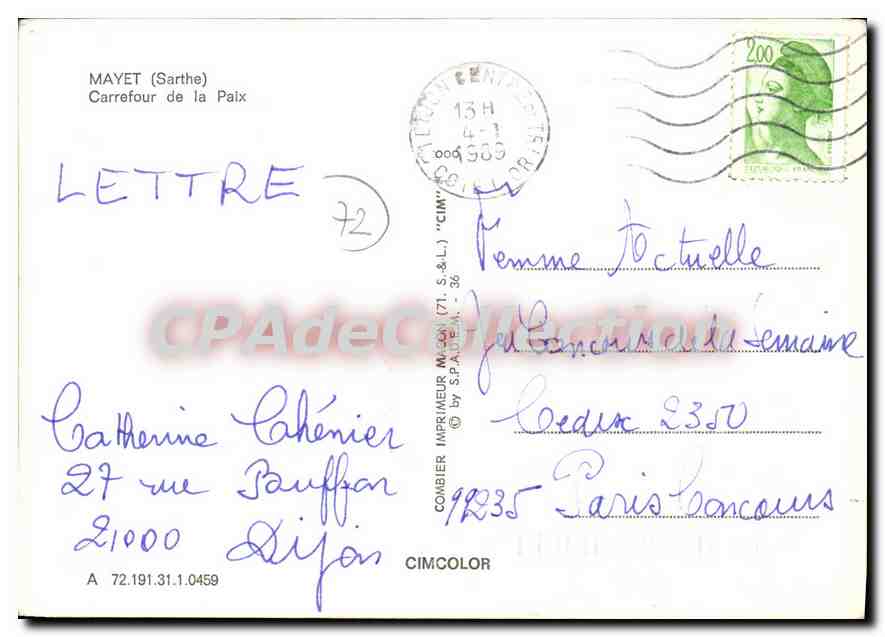 MAYET (Sarthe)
Carrefour de la Paix
LETTRE
72
13 H
4-1
1989
2,00
Femme Actuelle
Jeu Concours de la Semaine
Cedex 2350
99235 Paris Concours
Catherine Cahénier
27 rue Bauffon
21000 Dijon
COMBIER IMPRIMEUR MACON (71. S.&L.) "CIM"
© by S.P.A.D.E.M. - 36
CIMCOLOR
A 72.191.31.1.0459
CPAdeCollection